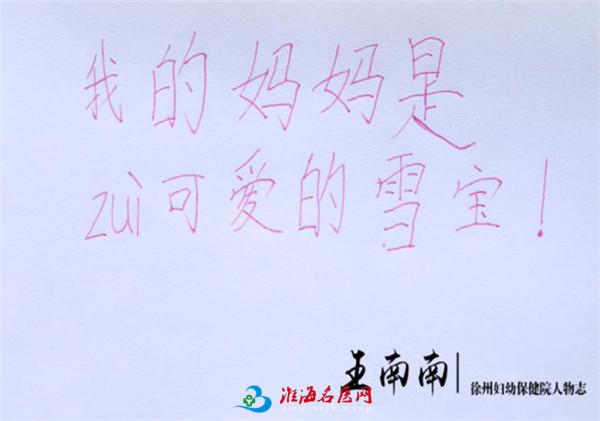 我的妈妈是
zuì可爱的雪宝！
王南南
徐州妇幼保健院人物志
淮海名医网